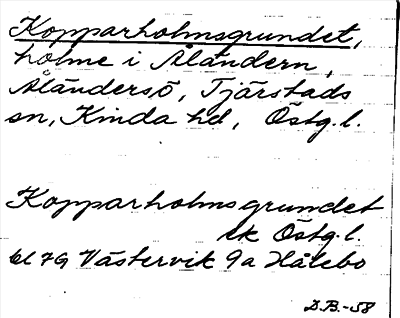 Kopparholmsgrundet,
holme i Åländern,
Åländersö, Tjärstads
sn, Kinda hd, Östg.l.
Kopparholmsgrundet
ek Östg.l.
bl 79 Västervik 9a Hålebo
D.B.-58